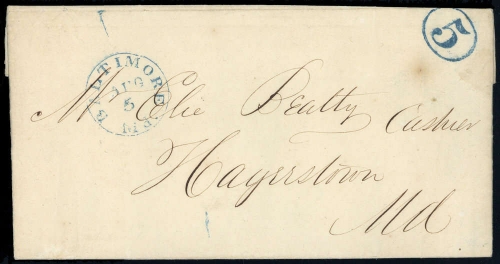 5
BALTIMORE Md.
AUG
5
Mr Elie Beatty Cashier
Hagerstown
Md